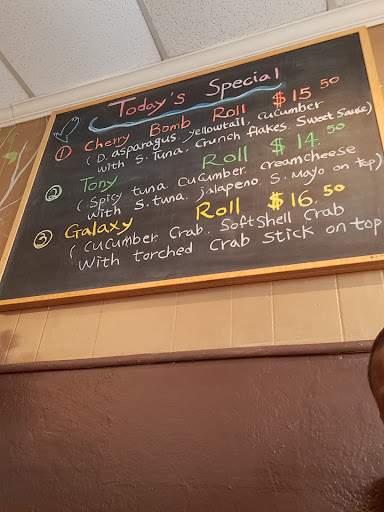 Today's Special
① Cherry Bomb Roll $15.50
(D. asparagus. yellowtail, cucumber
with S. Tuna. Crunch flakes. Sweet Sauce)
② Tony Roll $14.50
(Spicy tuna. cucumber. creamcheese
with S. tuna. jalapeno. S. Mayo on top)
③ Galaxy Roll $16.50
(cucumber. Crab. Soft Shell Crab
with torched Crab Stick on top